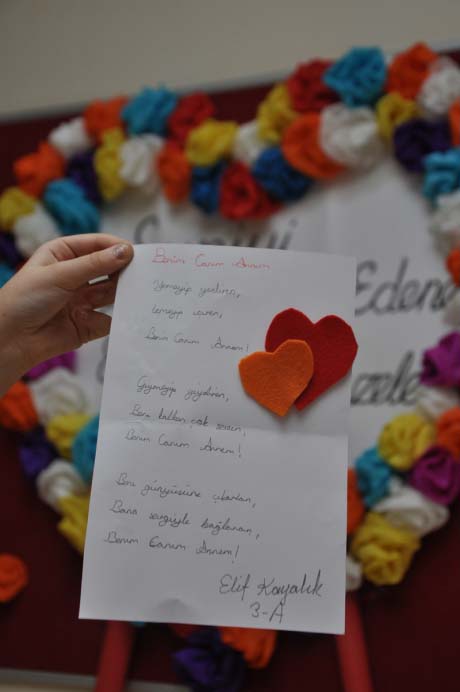 Benim Canım Annem
Yemeyip yediren,
İçmeyip içiren,
Benim Canım Annem!
Giymeyip giydiren,
Beni kalbten çok seven,
Benim Canım Annem!
Beni günyüzüne çıkartan,
Bana sevgiyle bağlanan,
Benim Canım Annem!
Elif Kayalık
3-A
Eden